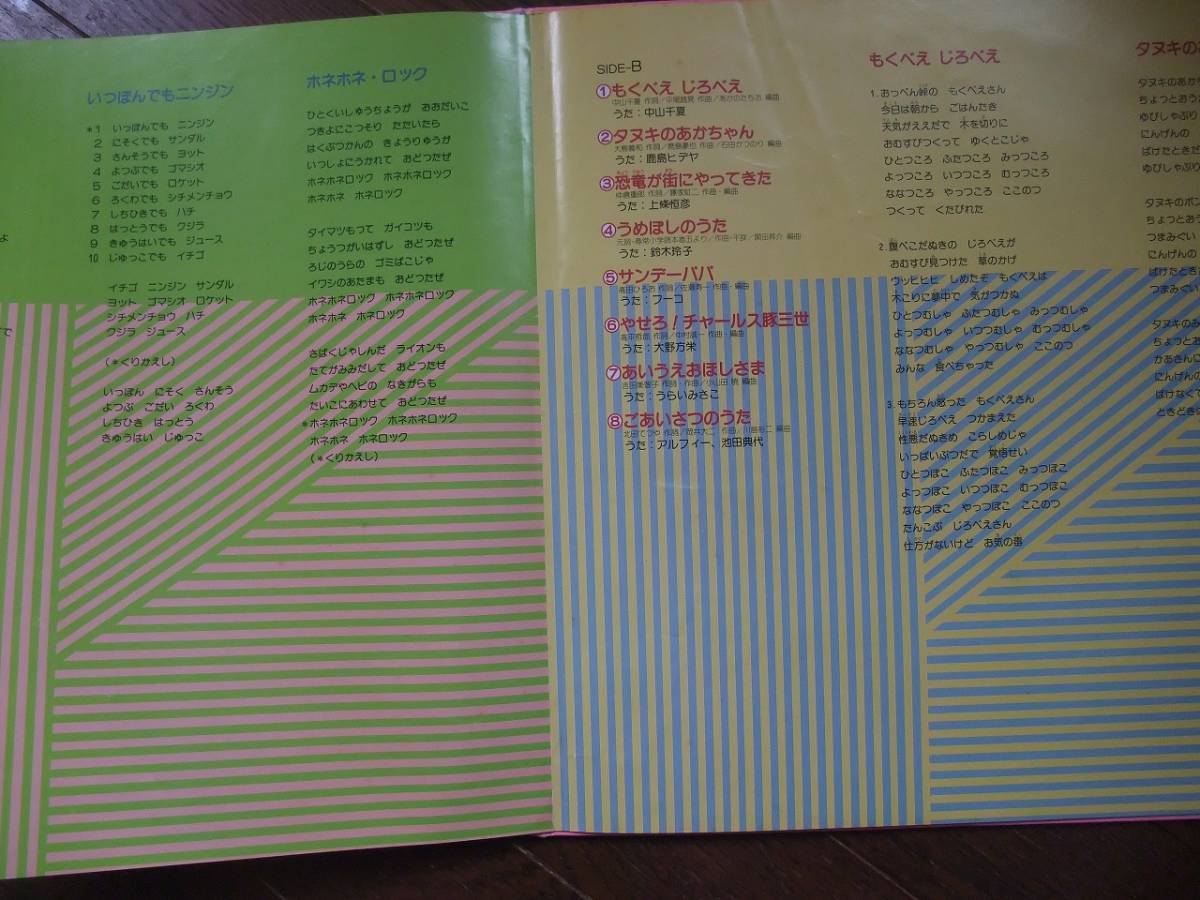 いっぽんでもニンジン
*1 いっぽんでも ニンジン
2 にそくでも サンダル
3 さんそうでも ヨット
4 よつぶでも ゴマシオ
5 ごだいでも ロケット
6 ろくわでも シチメンチョウ
7 しちひきでも ハチ
8 はっとうでも クジラ
9 きゅうはいでも ジュース
10 じゅっこでも イチゴ
イチゴ ニンジン サンダル
ヨット ゴマシオ ロケット
シチメンチョウ ハチ
クジラ ジュース
(*くりかえし)
いっぽん にそく さんそう
よつぶ ごだい ろくわ
しちひき はっとう
きゅうはい じゅっこ
ホネホネ・ロック
ひとくいしゅうちょうが おおだいこ
つきよにこっそり たたいたら
はくぶつかんの きょうりゅうが
いつしょにうかれて おどつたぜ
ホネホネロック ホネホネロック
ホネホネ ホネロック
タイマツもって ガイコツも
ちょうつがいはずし おどつたぜ
ろじのうらの ゴミばこじゃ
イワシのあたまも おどつたぜ
ホネホネロック ホネホネロック
ホネホネ ホネロック
さばくじゃしんだ ライオンも
たてがみみだして おどつたぜ
ムカデやヘビの なきがらも
たいこにあわせて おどつたぜ
*ホネホネロック ホネホネロック
ホネホネ ホネロック
(*くりかえし)
SIDE-B
①もくべえ じろべえ
うた:中山千夏
②タヌキのあかちゃん
うた:鹿島ヒデヤ
③恐竜が街にやってきた
うた:上條恒彦
④うめぼしのうた
うた:鈴木玲子
⑤サンデーパパ
うた:フーコ
⑥やせろ!チャールス豚三世
うた:大野方栄
⑦あいうえおほしさま
うた:うらいみさこ
⑧ごあいさつのうた
うた:アルフィー、池田典代
もくべえ じろべえ
1.おっぺん峠の もくべえさん
今日は朝から ごはんたき
天気がええだで 木を切りに
おむすびつくって ゆくとこじゃ
ひとつころ ふたつころ みっつころ
よっつころ いつつころ むっつころ
ななつころ やっつころ ここのつ
つくって くたびれた
2.腹ぺこだぬきの じろべえが
おむすび見つけた 草のかげ
ウッヒヒヒ しめたぞ もくべえは
木こりに夢中で 気がつかぬ
ひとつむしゃ ふたつむしゃ みっつむしゃ
よっつむしゃ いつつむしゃ むっつむしゃ
ななつむしゃ やっつむしゃ ここのつ
みんな 食べちゃった
3.もちろん怒った もくべえさん
早速じろべえ つかまえた
性悪だぬきめ こらしめじゃ
いっぱいぶつだで 覚悟せい
ひとつぽこ ふたつぽこ みっつぽこ
よっつぽこ いつつぽこ むっつぽこ
ななつぽこ やっつぽこ ここのつ
たんこぶ じろべえさん
仕方がないけど お気の毒
タヌキの
タヌキのあか
ちょっとおう
ゆびしゃぶり
にんげんの
ばけたときだ
ゆびしゃぶり
タヌキのボン
ちょっとおう
つまみぐい
にんげんの
ばけたときだ
つまみぐい
タヌキの
ちょっとお
かあさんに
にんげんの
ばけなくて
ときどき